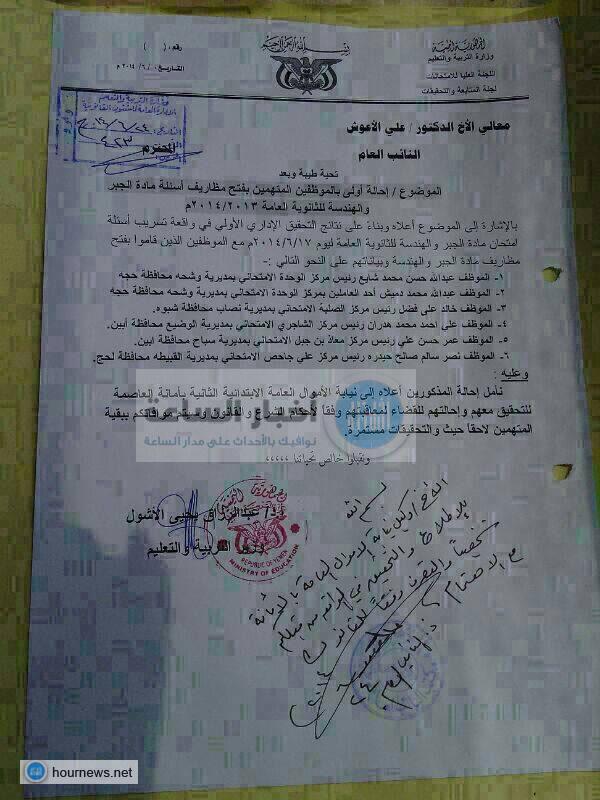 بسم الله الرحمن الرحيم
الجمهورية اليمنية
وزارة التربية والتعليم
اللجنة العليا للامتحانات
لجنة المتابعة والتحقيقات
رقم: ( )
التاريخ: / ٦ / ٢٠١٤م
وزارة التربية والتعليم
الإدارة العامة للشئون القانونية
٤٢٣
معالي الأخ الدكتور / علي الأعوش
المحترم
النائب العام
تحية طيبة وبعد
الموضوع / إحالة أولى بالموظفين المتهمين بفتح مظاريف أسئلة مادة الجبر
والهندسة للثانوية العامة ٢٠١٤/٢٠١٣م
بالإشارة إلى الموضوع أعلاه وبناءً على نتائج التحقيق الإداري الأولي في واقعة تسريب أسئلة
امتحان مادة الجبر والهندسة للثانوية العامة ليوم ٢٠١٤/٦/١٧م مع الموظفين الذين قاموا بفتح
مظاريف مادة الجبر والهندسة وبياناتهم على النحو التالي :-
١- الموظف عبدالله حسن محمد شايع رئيس مركز الوحدة الامتحاني بمديرية وشحه محافظة حجه
٢- الموظف عبدالله محمد دميش أحد العاملين بمركز الوحدة الامتحاني بمديرية وشحه محافظة حجه
٣- الموظف خالد على فضل رئيس مركز الصلبة الامتحاني بمديرية نصاب محافظة شبوه.
٤- الموظف على احمد محمد هدران رئيس مركز الشاجري الامتحاني بمديرية الوضيع محافظة أبين.
٥- الموظف عمر حسن علي رئيس مركز معاذ بن جبل الامتحاني بمديرية سباح محافظة ابين.
٦- الموظف نصر سالم صالح حيدره رئيس مركز علي جاحص الامتحاني بمديرية القبيطه محافظة لحج.
وعليه :
نأمل إحالة المذكورين أعلاه إلى نيابة الأموال العامة الابتدائية الثانية بأمانة العاصمة
للتحقيق معهم وإحالتهم للقضاء لمعاقبتهم وفقاً لأحكام الشرع والقانون وسيتم موافاتكم ببقية
المتهمين لاحقاً حيث والتحقيقات مستمرة.
أخبار الساعة
نوافيك بالأحداث على مدار الساعة
وتقبلوا خالص تحياتنا ،،،،،
د/ عبدالرزاق يحيى الأشول
وزير التربية والتعليم
REPUBLIC OF YEMEN
MINISTRY OF EDUCATION
بسم الله
الأخ / وكيل نيابة الأموال العامة بالأمانة
hournews.net